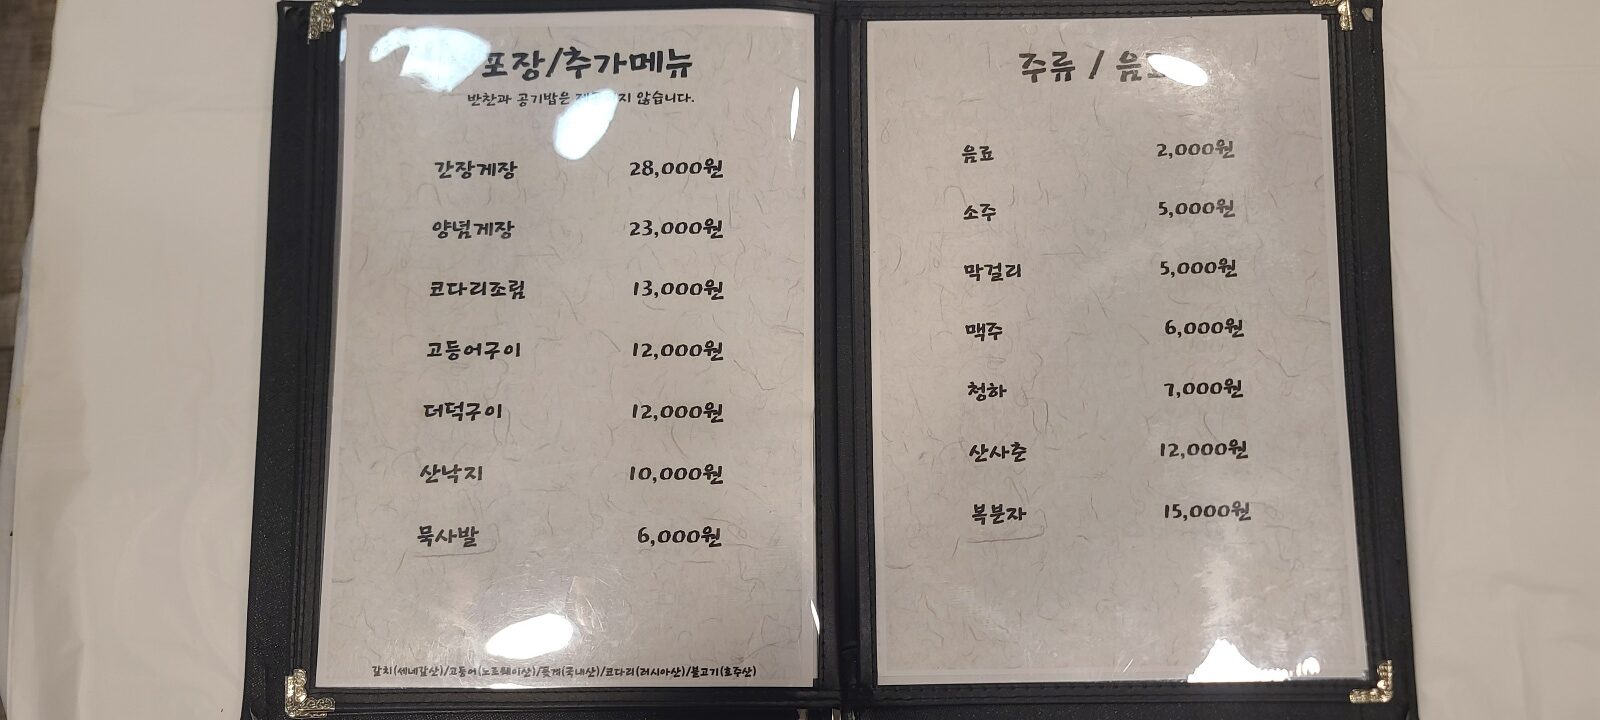 포장/추가메뉴
반찬과 공기밥은 않습니다.
간장게장 28,000원
양념게장 23,000원
코다리조림 13,000원
고등어구이 12,000원
더덕구이 12,000원
산낙지 10,000원
묵사발 6,000원
갈치(세네갈산)/고등어(노르웨이산)/꽃게(국내산)/코다리(러시아산)/불고기(호주산)
주류 /
음료 2,000원
소주 5,000원
막걸리 5,000원
맥주 6,000원
청하 7,000원
산사춘 12,000원
복분자 15,000원